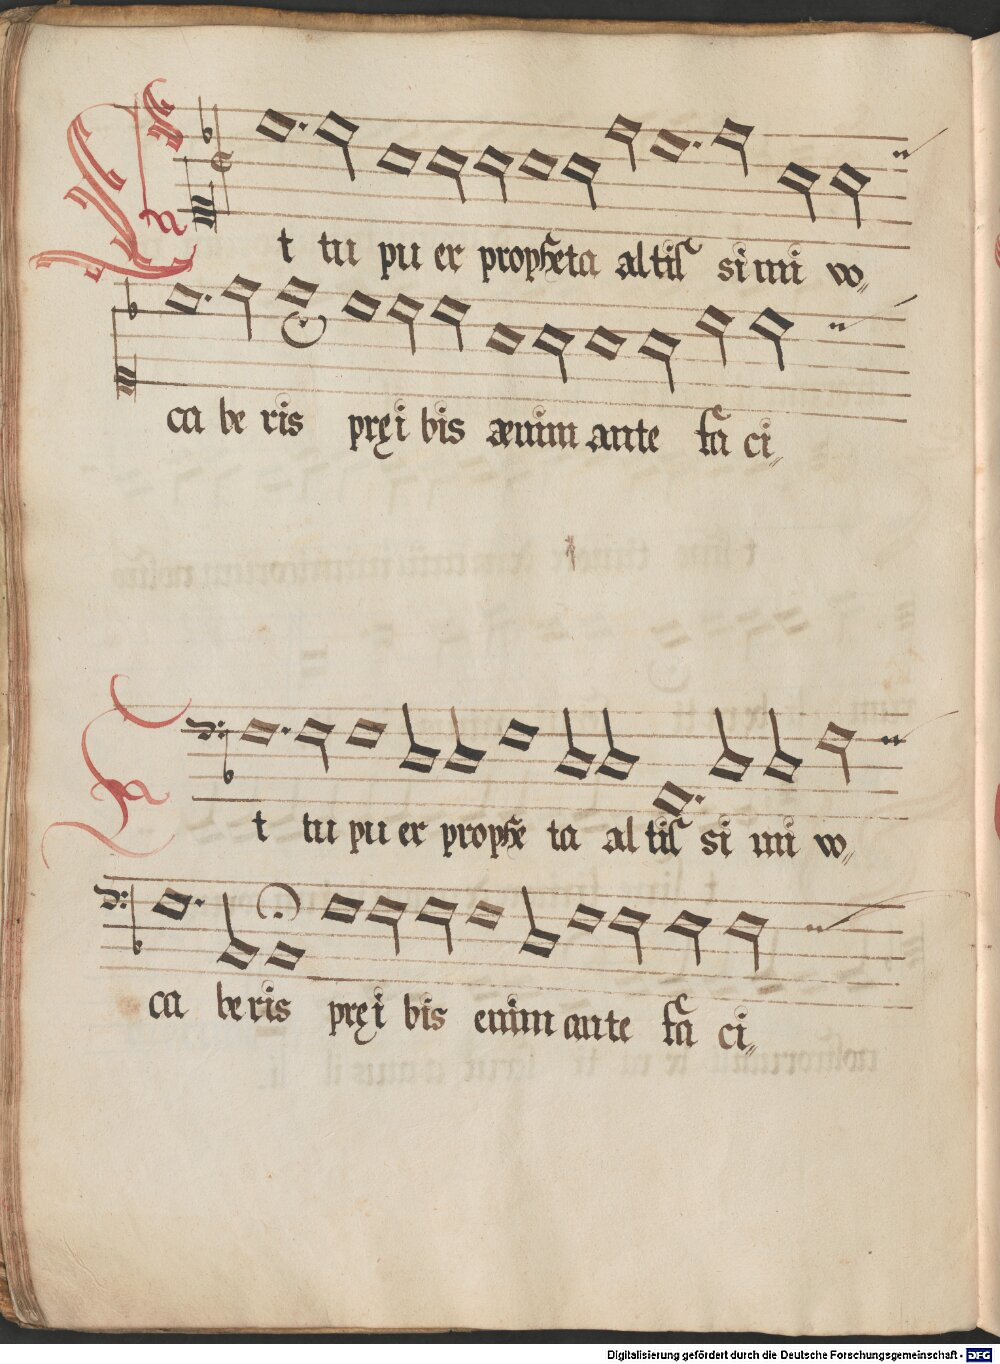 Et tu pu er propheta altis simi vo„
ca be ris pręi bis ænim ante fa ci„
Et tu pu er prophe ta al tis si mi vo„
ca beris pręi bis enim ante fa ci„
Digitalisierung gefördert durch die Deutsche Forschungsgemeinschaft - DFG